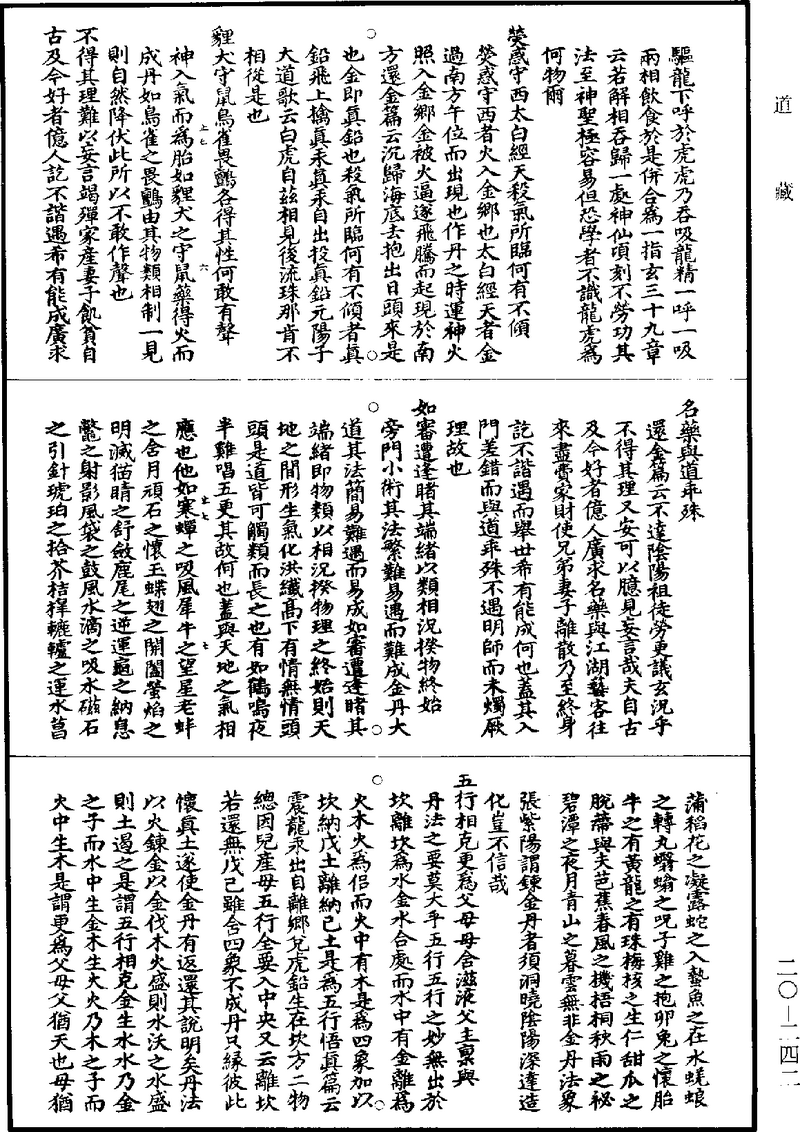 道藏
二〇—二四二
驅龍下呼於虎虎乃吞吸龍精一呼一吸
兩相飲食於是併合為一指玄三十九章
云若解相吞歸一處神仙頃刻不勞功其
法至神聖極容易但恐學者不識龍虎為
何物爾
熒惑守西太白經天殺氣所臨何有不傾
熒惑守西者火入金鄉也太白經天者金
過南方午位而出現也作丹之時運神火
照入金鄉金被火逼遂飛騰而起現於南
方還金篇云沉歸海底去抱出日頭來是
也金即真鉛也殺氣所臨何有不傾者真
鉛飛上擒真汞真汞自出投真鉛元陽子
大道歌云白虎自茲相見後流珠那肯不
相從是也
貍犬守鼠鳥雀畏鸇各得其性何敢有聲
神入氣而為胎如貍犬之守鼠藥得火而
成丹如鳥雀之畏鸇由其物類相制一見
則自然降伏此所以不敢作聲也
不得其理難以妄言竭殫家產妻子飢貧自
古及今好者億人訖不諧遇希有能成廣求
名藥與道乖殊
還金篇云不達陰陽祖徒勞更議玄況乎
不得其理又安可以臆見妄言哉夫自古
及今好者億人廣求名藥與江湖藝客往
來盡費家財使兄弟妻子離散乃至終身
訖不諧遇而舉世希有能成何也蓋其入
門差錯而與道乖殊不遇明師而未燭厥
理故也
如審遭逢睹其端緒以類相況揆物終始
旁門小術其法繁難易遇而難成金丹大
道其法簡易難遇而易成如審遭逢睹其
端緒即物類以相況揆物理之終始則天
地之間形生氣化洪纖高下有情無情頭
頭是道皆可觸類而長之也有如鶴鳴夜
半雞唱五更其故何也蓋與天地之氣相
應也他如寒蟬之吸風犀牛之望星老蚌
之含月頑石之懷玉蝶翅之開闔螢焰之
明滅猫睛之舒斂鹿尾之逆運龜之納息
鼈之射影風袋之鼓風水滴之吸水磁石
之引針琥珀之拾芥桔橰轆轤之運水菖
蒲稻花之凝露蛇之入蟄魚之在水蜣蜋
之轉丸蠮螉之呪子雞之抱卵兔之懷胎
牛之有黃龍之有珠梅核之生仁甜瓜之
脫蔕與夫芭蕉春風之機梧桐秋雨之秘
碧潭之夜月青山之暮雲無非金丹法象
張紫陽謂鍊金丹者須洞曉陰陽深達造
化豈不信哉
五行相克更為父母母含滋液父主禀與
丹法之要莫大乎五行五行之妙無出於
坎離坎為水金水合處而水中有金離為
火木火為侶而火中有木是為四象加以
坎納戊土離納己土是為五行悟真篇云
震龍汞出自離鄉兌虎鉛生在坎方二物
總因兒產母五行全要入中央又云離坎
若還無戊己雖含四象不成丹只緣彼此
懷真土遂使金丹有返還其說明矣丹法
以火鍊金以金伐木火盛則水沃之水盛
則土遏之是謂五行相克金生水水乃金
之子而水中生金木生火火乃木之子而
火中生木是謂更為父母父猶天也母猶